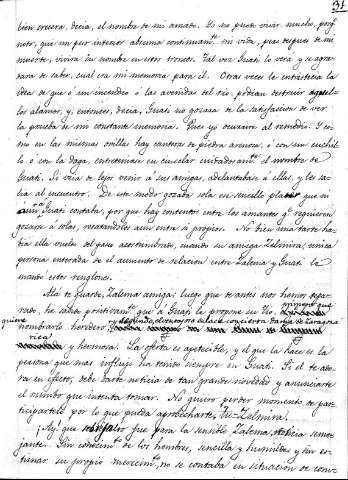 31
bien crecera, decia, el nombre de mi amado. Yo no puedo vivir mucho,
noto, que un pesar interior abruma continuamte mi vida, pues despues de mi
muerte, vivira su nombre en estos troncos. Tal vez Guati lo vera y se agra-
dara de saber, cual era mi memoria para él. Otras veces le entristecia la
idea de que ó un incendio ó las avenidas del rio, podian destruir aquel-
los alamos, y, entonces, decia, Guati no gozara de la satisfaccion de ver
la prueba de mi constante memoria. Pues yo ocurriré al remedio. Y co-
mo en las mismas orillas hay canteras de piedra arenosa, ó con un cuchil-
lo ó con la daga, entreteniase en cincelar cuidadosamte el nombre de
Guati. Si veia de lejos venir á sus amigas, adelantabase á ellas, y les sa-
lia al encuentro. De este modo gozaba sola un sencillo placer que ni
á Guati contaba, por que hay contentos entre los amantes qe requieren
gozarse á solas, recatandolos aun entre si propios. No bien una tarde ha-
bia ella vuelto del paseo acostumbrado, cuando su amiga Zelmira, unica
persona enterada de el aumento de relacion entre Zalema y Guati le
mandó estos renglones.
Alá te guarde, Zalema amiga; luego que te antes nos hemos sepa-
rado, he sabido positivamte que á Guati le propone su tio, primero que
nombrarle heredero
de Zaragoza
quiere
rica
y hermosa. La oferta es apetecible, y el que la hace es la
persona que mas influjo ha tenido siempre en Guati. Si el te ado-
ra en efecto, debe darte noticia de tan grande novedad y anunciarte
el rumbo que intenta tomar. No quiero perder momento de par-
ticipartelo por lo que pueda aprovecharte, Tu Zelmira.
¡Ay! que fue para la sensible Zalema, noticia seme-
jante. Sin conocimto de los hombres, sencilla y humilde, y sin es-
timar su propio merecimto, no se contaba en situacion de conv-